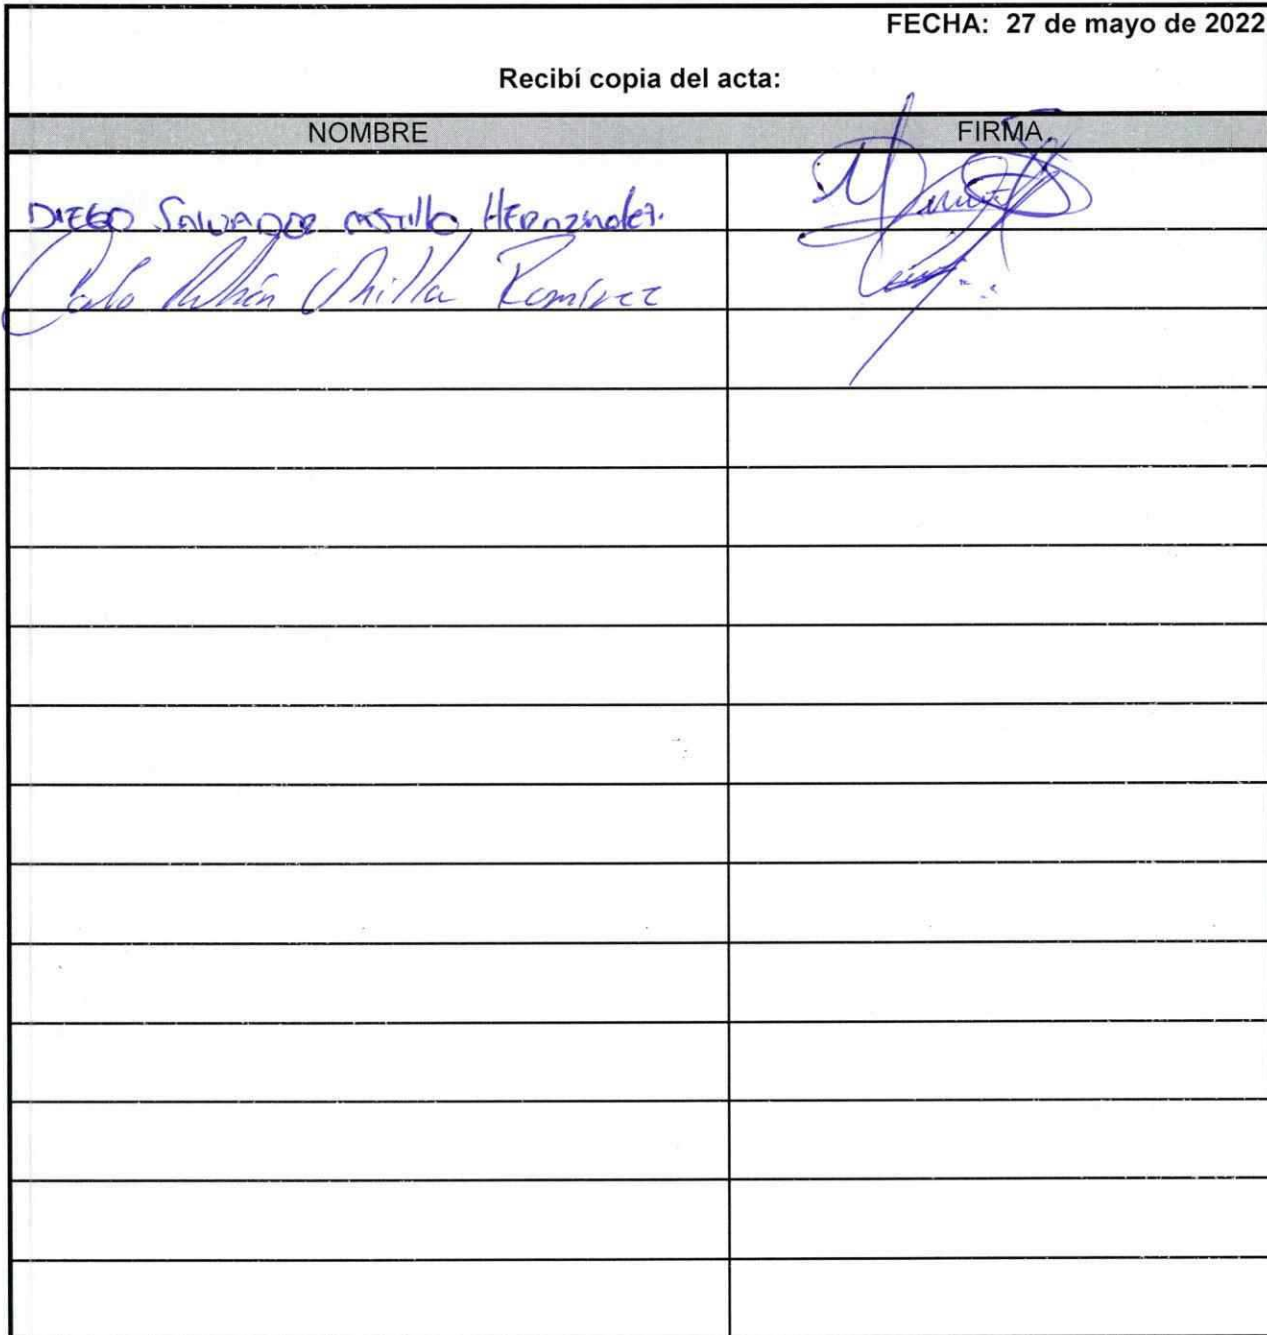 FECHA: 27 de mayo de 2022
Recibí copia del acta:
NOMBRE FIRMA
DIEGO SALVADOR CASTILLO HERNÁNDEZ.
Rubén Ramírez